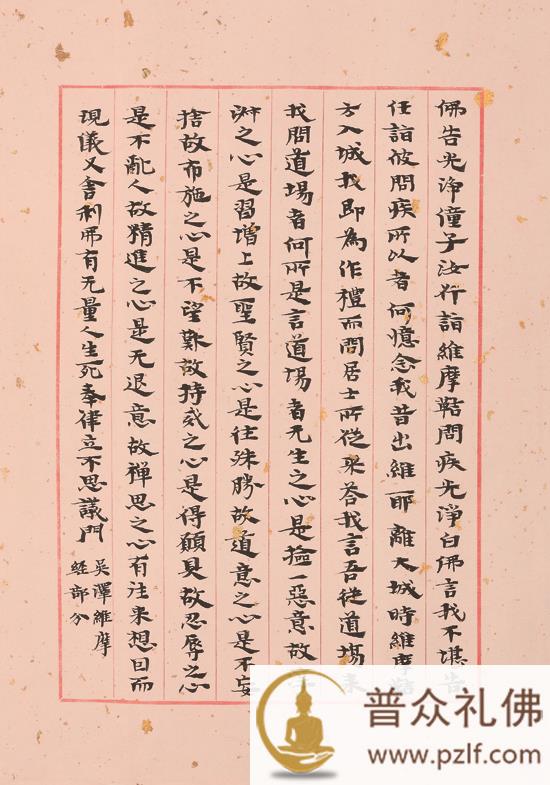 佛告光淨僮子汝行詣維摩鞊問疾光淨白佛言我不堪
任詣彼問疾所以者何憶念我昔出維耶離大城時維摩鞊
方入城我即為作禮而問居士所從來答我言吾從道場来
我問道場者何所是言道場者无生之心是撿一惡意故
淑之心是習增上故聖賢之心是往殊勝故道意之心是不妄
捨故布施之心是不望故持戒之心是得願具故忍辱之心
是不亂人故精進之心是无退意故禪思之心有注来想曰而
現儀又舍利弗有无量人生死奉律立不思議門
吳譯維摩
經部分
普众礼佛
www.pzlf.com